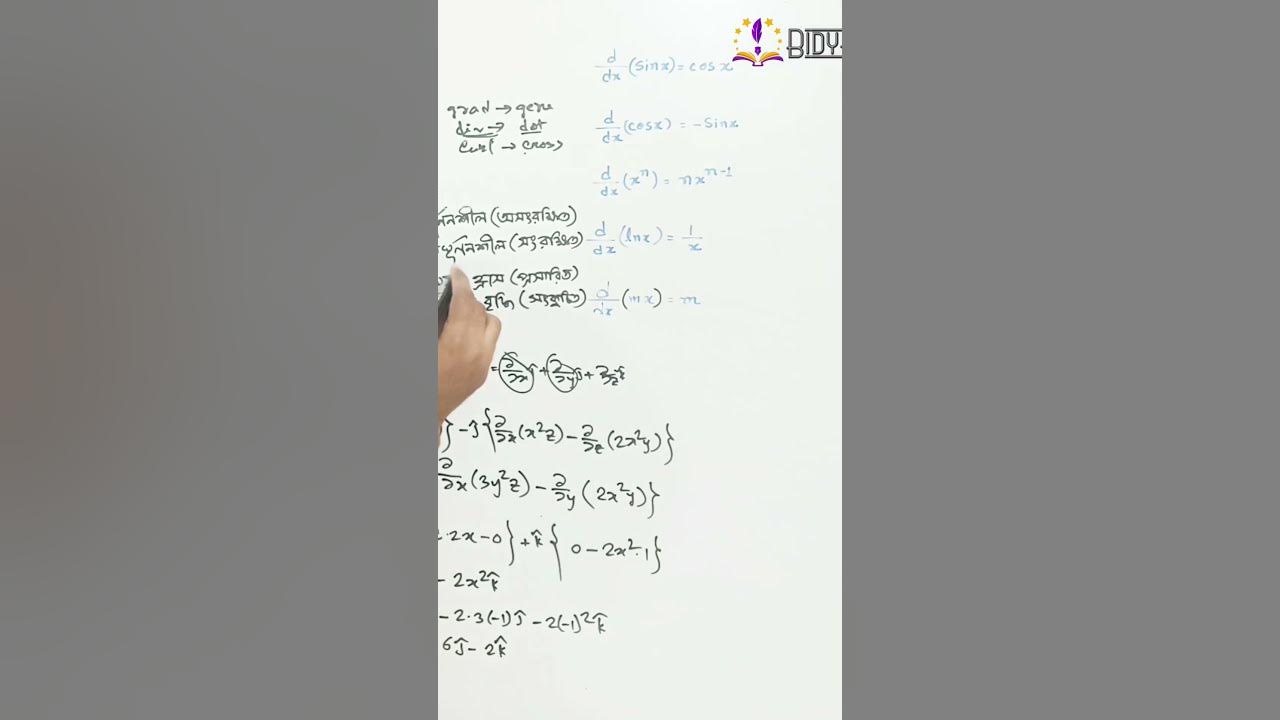 BIDY
d/dx (sinx) = cosx
grad → গুন
div → dot
Curl → Cross
d/dx (cosx) = -Sinx
d/dx (xⁿ) = nxⁿ⁻¹
র্ণনশীল (অসংরক্ষিত)
ঘূর্ণনশীল (সংরক্ষিত) d/dx (lnx) = 1/x
হ্রাস (প্রসারিত)
বৃদ্ধি (সংকুচিত) d/dx (mx) = m
= ∂/∂x î + ∂/∂y ĵ + ∂/∂z k̂
} - ĵ {∂/∂x (x²z) - ∂/∂z (2x²y)}
∂/∂x (3y²z) - ∂/∂y (2x²y)}
·2x - 0} + k̂ {0 - 2x²·1}
- 2x²k̂
- 2·3(-1)ĵ - 2(-1)²k̂
6ĵ - 2k̂